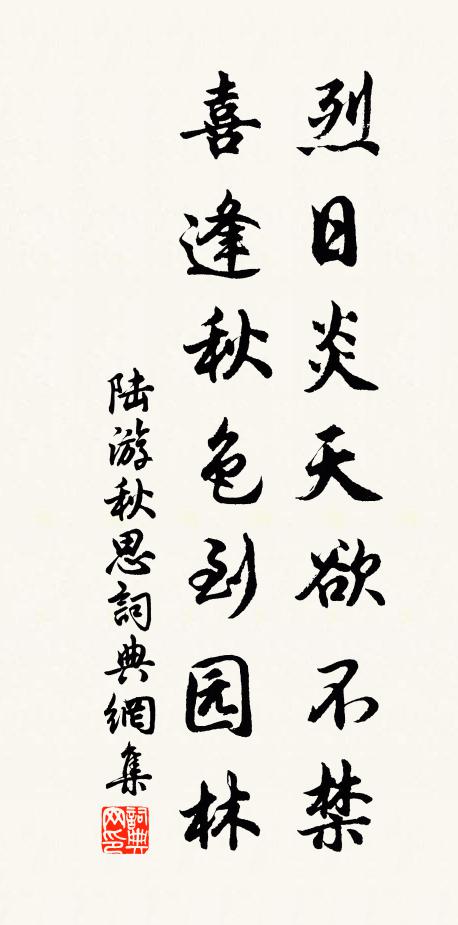 烈日炎天欲不禁
喜逢秋色到园林
陆游秋思詞典網集
詞典网印